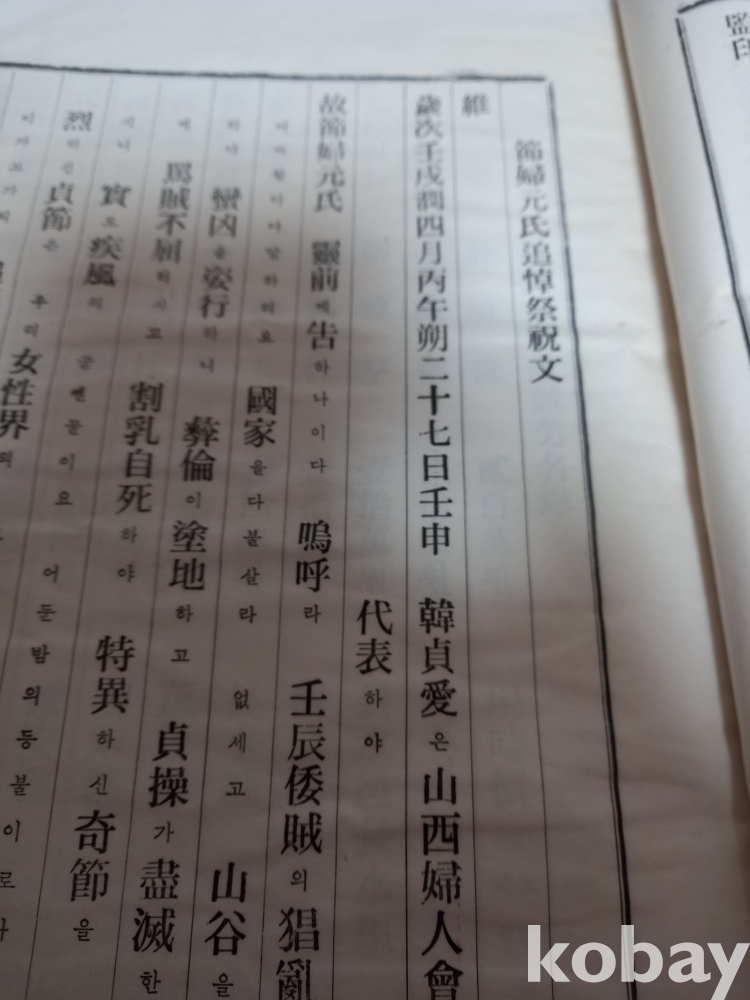 監印
節婦元氏追悼祭祝文
維
歲次壬戌潤四月丙午朔二十七日壬申 韓貞愛은山西婦人會
代表하야
故節婦元氏 靈前에告하나이다 嗚呼라 壬辰倭賊의猖亂
말하리요 國家을다불살라 없세고 山谷을
하야 蠻凶을姿行하니 彛倫이塗地하고 貞操가盡滅한
罵賊不屈하시고 割乳自死하야 特異하신奇節을
시니 實로疾風의 굳센풀이요 어둔밤의등불이로
烈하신貞節은 우리女性界의
kobay